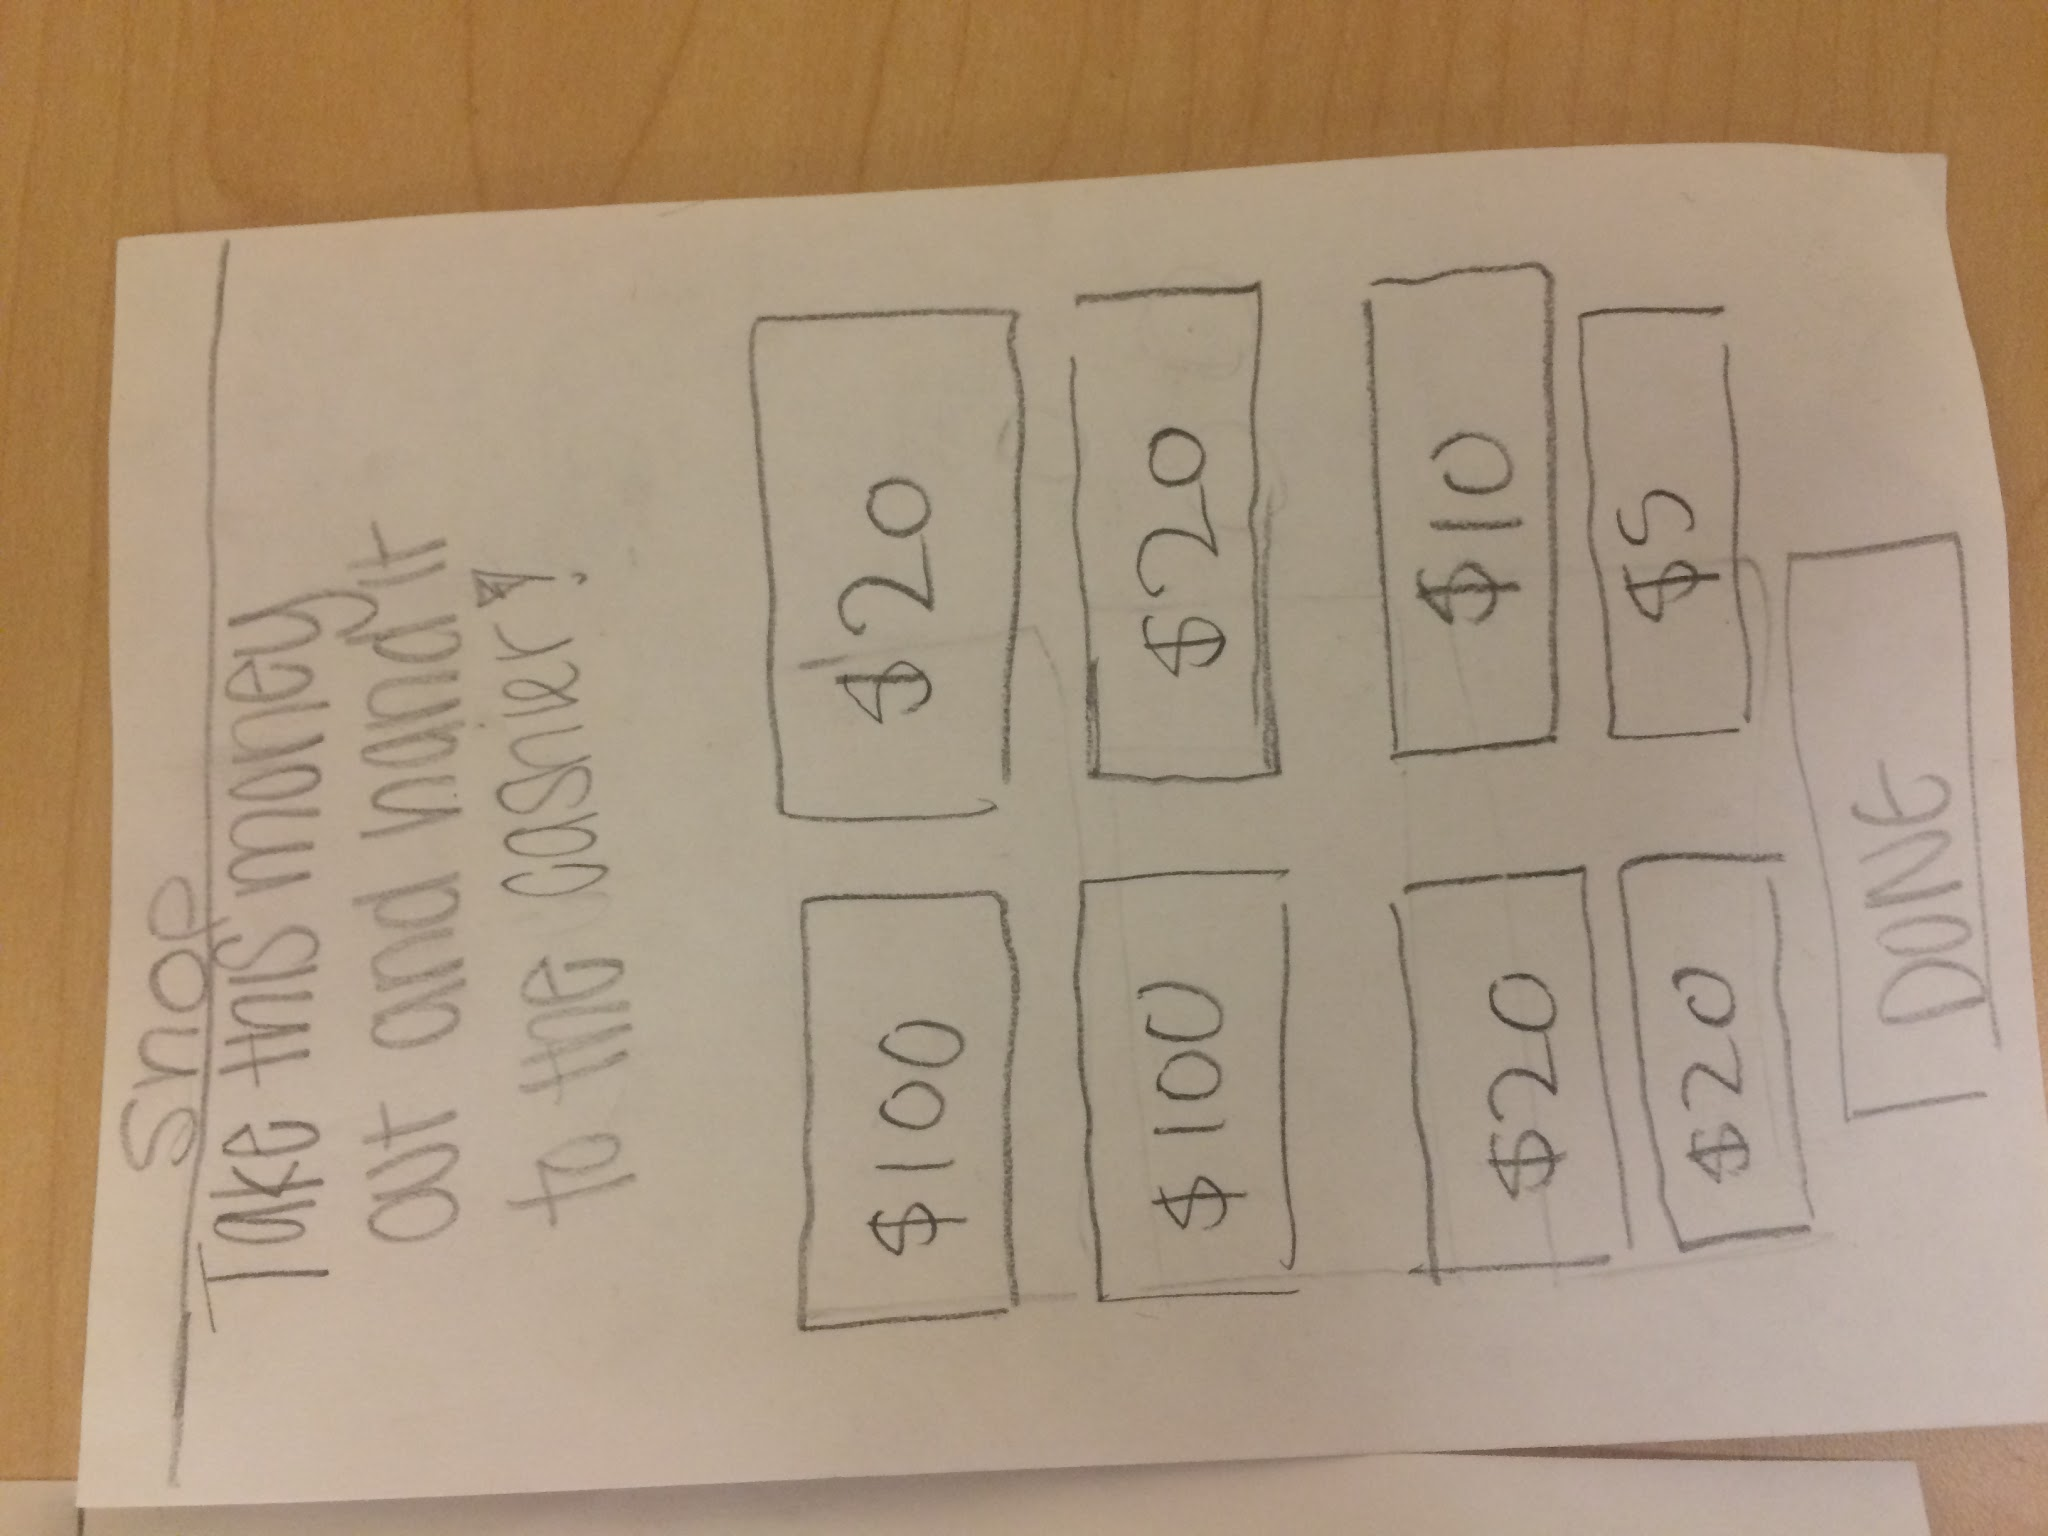 Shop
Take this money
out and hand it
to the cashier!
$100 $20
$100 $20
$20 $10
$20 $5
DONE